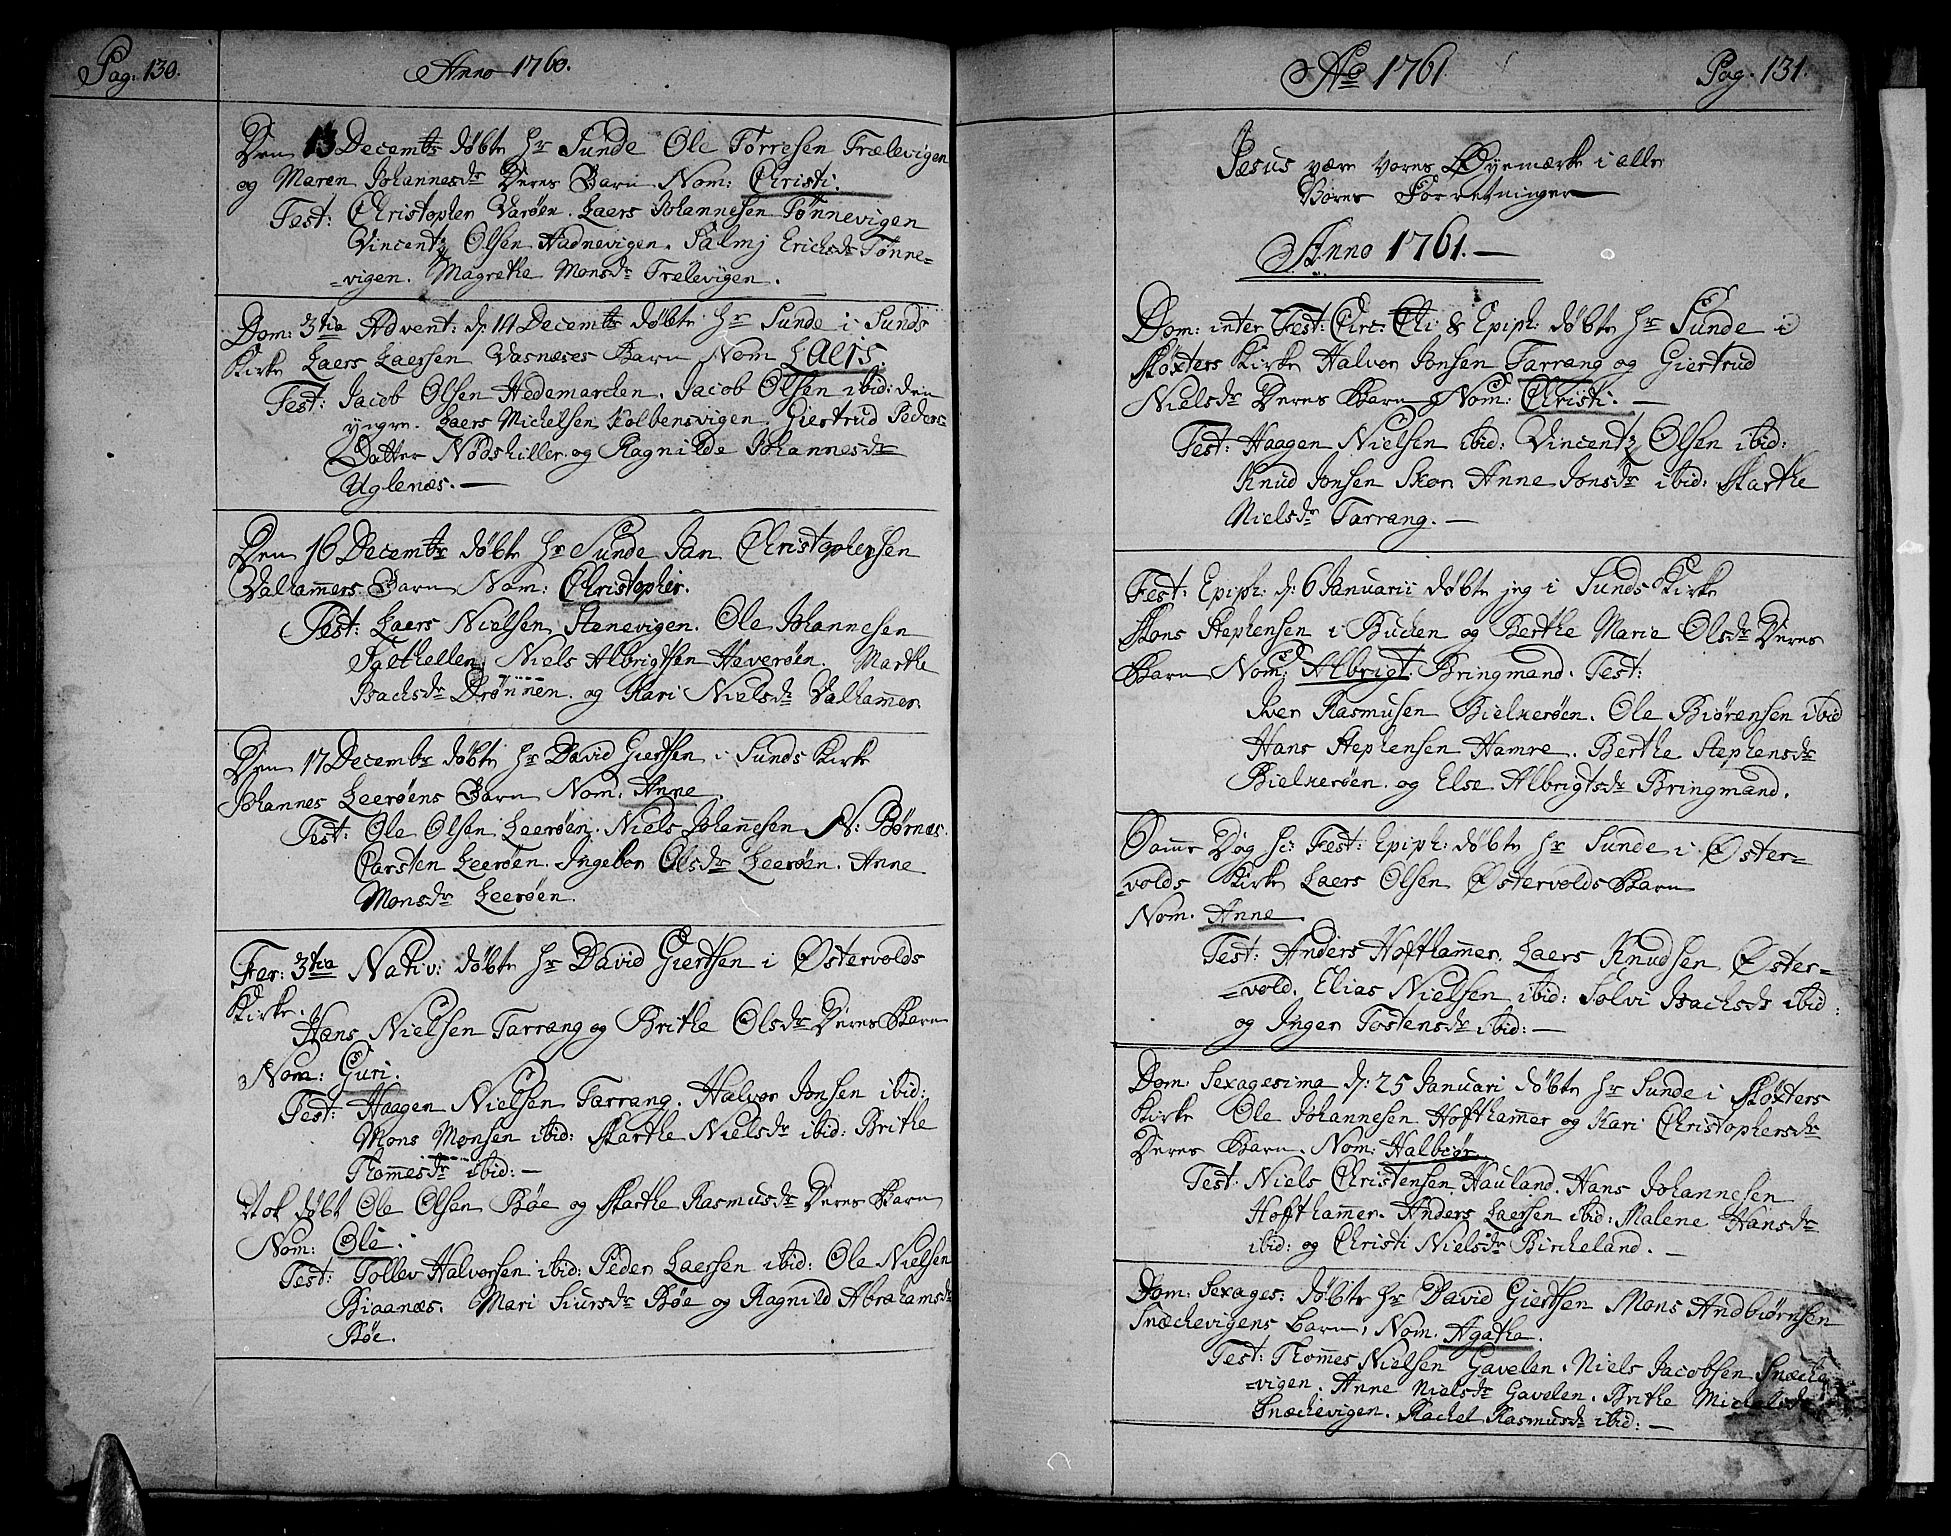 Pag. 130.
Anno 1760.
Den 13 Decembr døbte Hr Sunde Ole Torresen Trælevigen
og Maren Johannesdr Deres Barn Nom: Christi.
Test: Christopher Varøen. Laers Johannesen Tønnevigen
Vincentz Olsen Hadnevigen. Salmj Erichsdr Tønne=
=vigen. Magrethe Monsdr Trælevigen.
Dom: 3tia Advent: d: 14 Decembr døbte Hr Sunde i Sunds
Kirke Laers Laersen Vasnæses Barn Nom Laers.
Test: Jacob Olsen Hedemarchen. Jacob Olsen ibid: den
yngre. Laers Michelsen Kolbensvigen. Giertrud Peders
Datter Nødshiller og Ragnilde Johannesdr
Uglenæs. —
Den 16 Decembr døbte Hr Sunde Jan Christophersen
Valhamers Barn Nom: Christopher.
Test: Laers Nielsen Stenevigen. Ole Johannesen
Niels Albrigtsen Haverøen. Marthe
Isachsdr Drønnen. og Kari Nielsdr Valhamer.
Den 17 Decembr døbte Hr David Giertsen i Sunds Kirke
Johannes Leerøens Barn Nom. Anne.
Test: Ole Olsen Leerøen. Niels Johannesen N: Børnæs.
Carsten Leerøen. Ingebor Olsdr Leerøen. Anne
Monsdr Leerøen.
Fer: 3tia Nativ: døbte Hr David Giertsen i Østervolds
Kirke.
Hans Nielsen Tarrang og Brithe Olsdr Deres Barn
Nom: Guri.
Test: Haagen Nielsen Tarrang. Halvor Jonsen ibid:
Mons Monsen ibid: Marthe Nielsdr ibid: Brithe
Thomesdr ibid: —
Item døbt Ole Olsen Bøe og Marthe Rasmusdr Deres Barn
Nom: Ole.
Test: Tollev Halvorsen ibid: Peder Laersen ibid: Ole Nielsen
Biaanæs. Mari Siursdr Bøe og Ragnild Abrahamsdr
Bøe.
Ao 1761
Pag. 131.
Jesus være vores Øyemærke i alle
Vores Forretninger
Anno 1761. —
Dom: inter Fest: Circ: Chi & Epiph: døbte Hr Sunde i
Møxters Kirke Halvor Jonsen Tarrang og Giertrud
Nielsdr Deres Barn Nom: Christi. —
Test: Haagen Nielsen ibid: Vincentz Olsen ibid:
Knud Jonsen Skor Anne Jonsdr ibid: Marthe
Nielsdr Tarrang. —
Fest: Epiph: d: 6 Januarii døbte jeg i Sunds Kirke
Mons Stephensen i Buchen og Berthe Marie Olsdr Deres
Barn Nom: Albrigt Bringmand. Test:
Iver Rasmusen Bielkerøen. Ole Biørensen ibid
Hans Stephensen Hamre. Berthe Stephensdr
Bielkerøen. og Else Albrigtsdr Bringmand.
Same Dag sc: Fest: Epiph: døbte Hr Sunde i Øster=
=volds Kirke Laers Olsen Østervolds Barn
Nom. Anne
Test: Anders Hofthamer. Laers Knudsen Øster=
=vold. Elias Nielsen ibid: Solvi Isachsdr ibid:
og Inger Tostensdr ibid: —
Dom: Sexagesima d: 25 Januari døbte Hr Sunde i Møxters
Kirke Ole Johannesen Hofthamer og Kari Christophersdr
Deres Barn. Nom: Halbiør.
Test: Niels Christensen Hauland. Hans Johannesen
Hofthamer. Anders Laersen ibid: Malene Hansdr
ibid: og Christi Nielsdr Bircheland. —
Dom: Sexages: døbte Hr David Giertsen Mons Andbiørnsen
Snechevigens Barn, Nom. Agatha.
Test: Thomes Nielsen Gavelen. Niels Jacobsen Sneche
=vigen. Anne Nielsdr Gavelen. Brithe Michelsdr
Snechevigen. Rachel Rasmusdr ibid: —